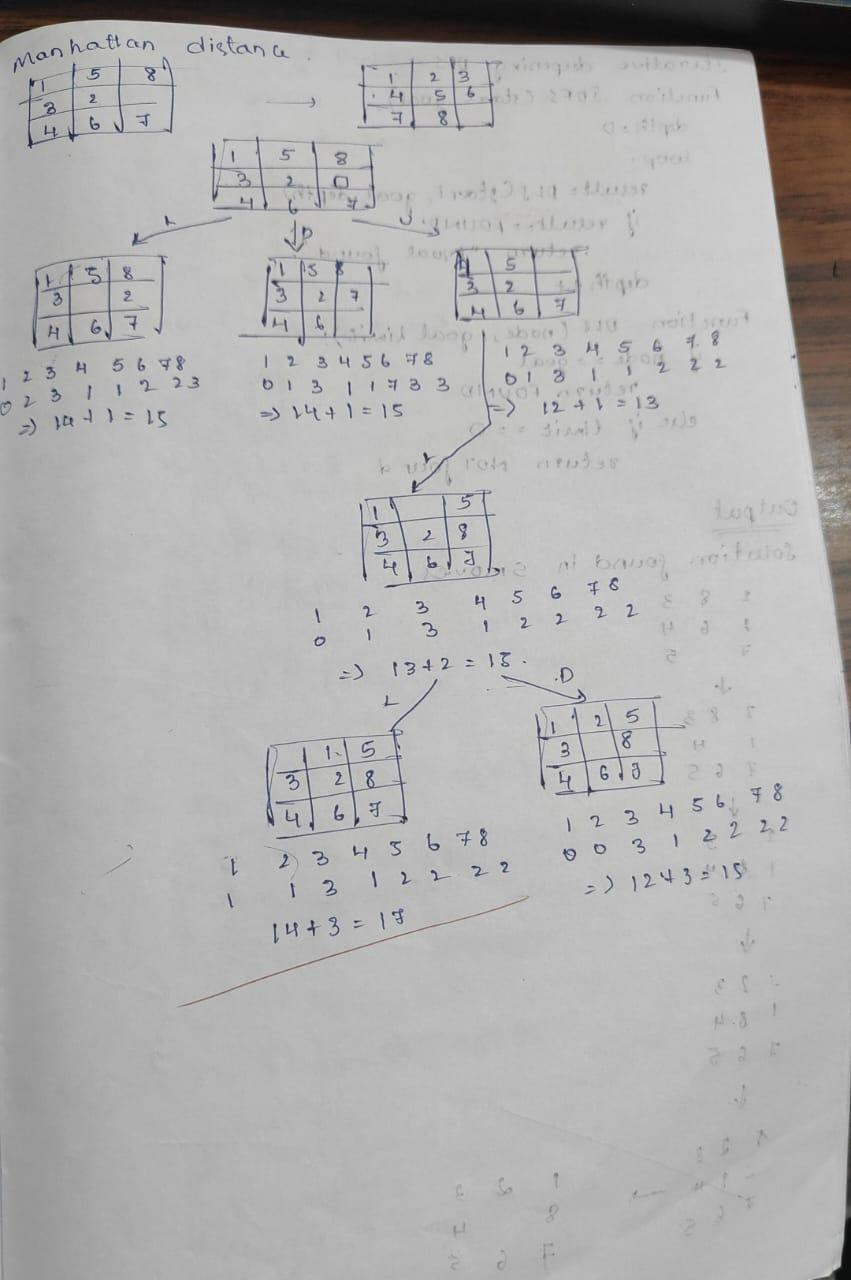 Manhattan distance.
1 5 8
3 2
4 6 7
→
1 2 3
4 5 6
7 8
1 5 8
3 2 0
4 6 7
L D U
1 5 8
3 2
4 6 7
1 2 3 4 5 6 7 8
0 2 3 1 1 2 2 3
=) 14 + 1 = 15
1 5 8
3 2 7
4 6
1 2 3 4 5 6 7 8
0 1 3 1 1 7 3 3
=) 14 + 1 = 15
5
3 2
4 6 7
1 2 3 4 5 6 7 8
0 1 3 1 1 2 2 2
=) 12 + 1 = 13
L
1 5
3 2 8
4 6 7
1 2 3 4 5 6 7 8
0 1 3 1 2 2 2 2
=) 13 + 2 = 15.
L D
1 5
3 2 8
4 6 7
1 2 3 4 5 6 7 8
1 1 3 1 2 2 2 2
14 + 3 = 17
1 2 5
3 8
4 6 7
1 2 3 4 5 6 7 8
0 0 3 1 2 2 2 2
=) 12 + 3 = 15